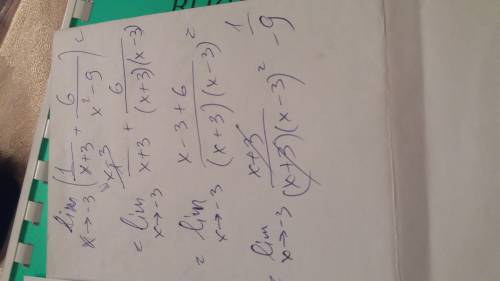 lim x→-3 (1/(x+3) + 6/(x²-9)) =
= lim x→-3 x-3/(x+3) + 6/((x+3)(x-3))
= lim x→-3 (x-3+6)/((x+3)(x-3)) =
= lim x→-3 (x+3)/((x+3)(x-3)) = 1/-9